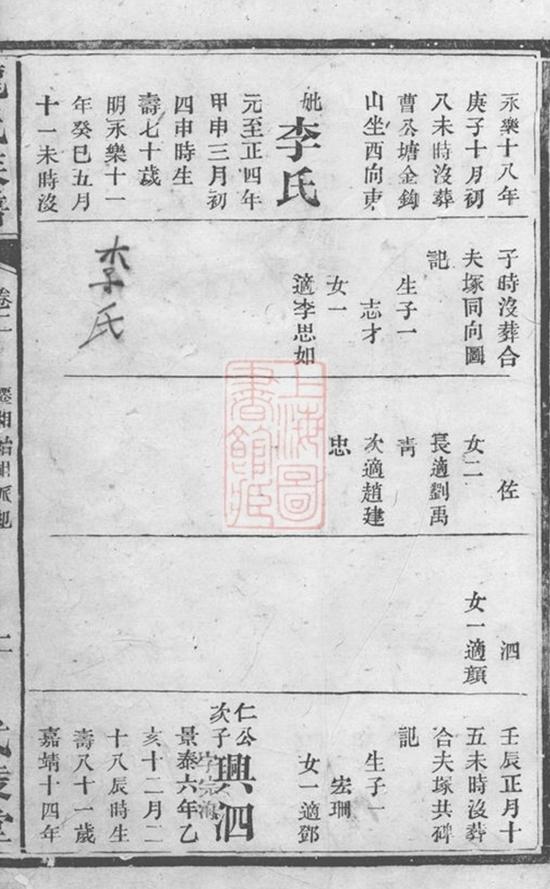 永樂十八年
庚子十月初
八未時沒葬
曹公塘金鈎
山坐西向東
妣李氏
元至正四年
甲申三月初
四申時生
壽七十歲
明永樂十一
年癸巳五月
十一未時沒
子時沒葬合
夫塚同向圖
記
生子一
志才
女一
適李思如
李氏
佐
女二
長適劉禹
靑
次適趙建
忠
泗
女一適顏
壬辰正月十
五未時沒葬
合夫塚共碑
記
生子一
宏珊
女一適鄧
仁公次子
興泗
字宗海
景泰六年乙
亥十二月二
十八辰時生
壽八十一歲
嘉靖十四年
上海圖
書館藏
卷二